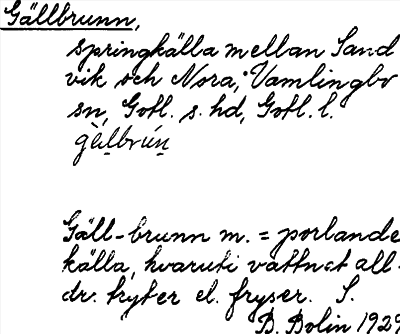 Gällbrunn,
springkälla mellan Sand
vik och Nora, Vamlingbo
sn, Gotl. s. hd, Gotl. l.
gälbrún
Gäll-brunn m. = porlande
källa, hvaruti vattnet all-
dr. tryter el. fryser. S.
B. Bolin 1929